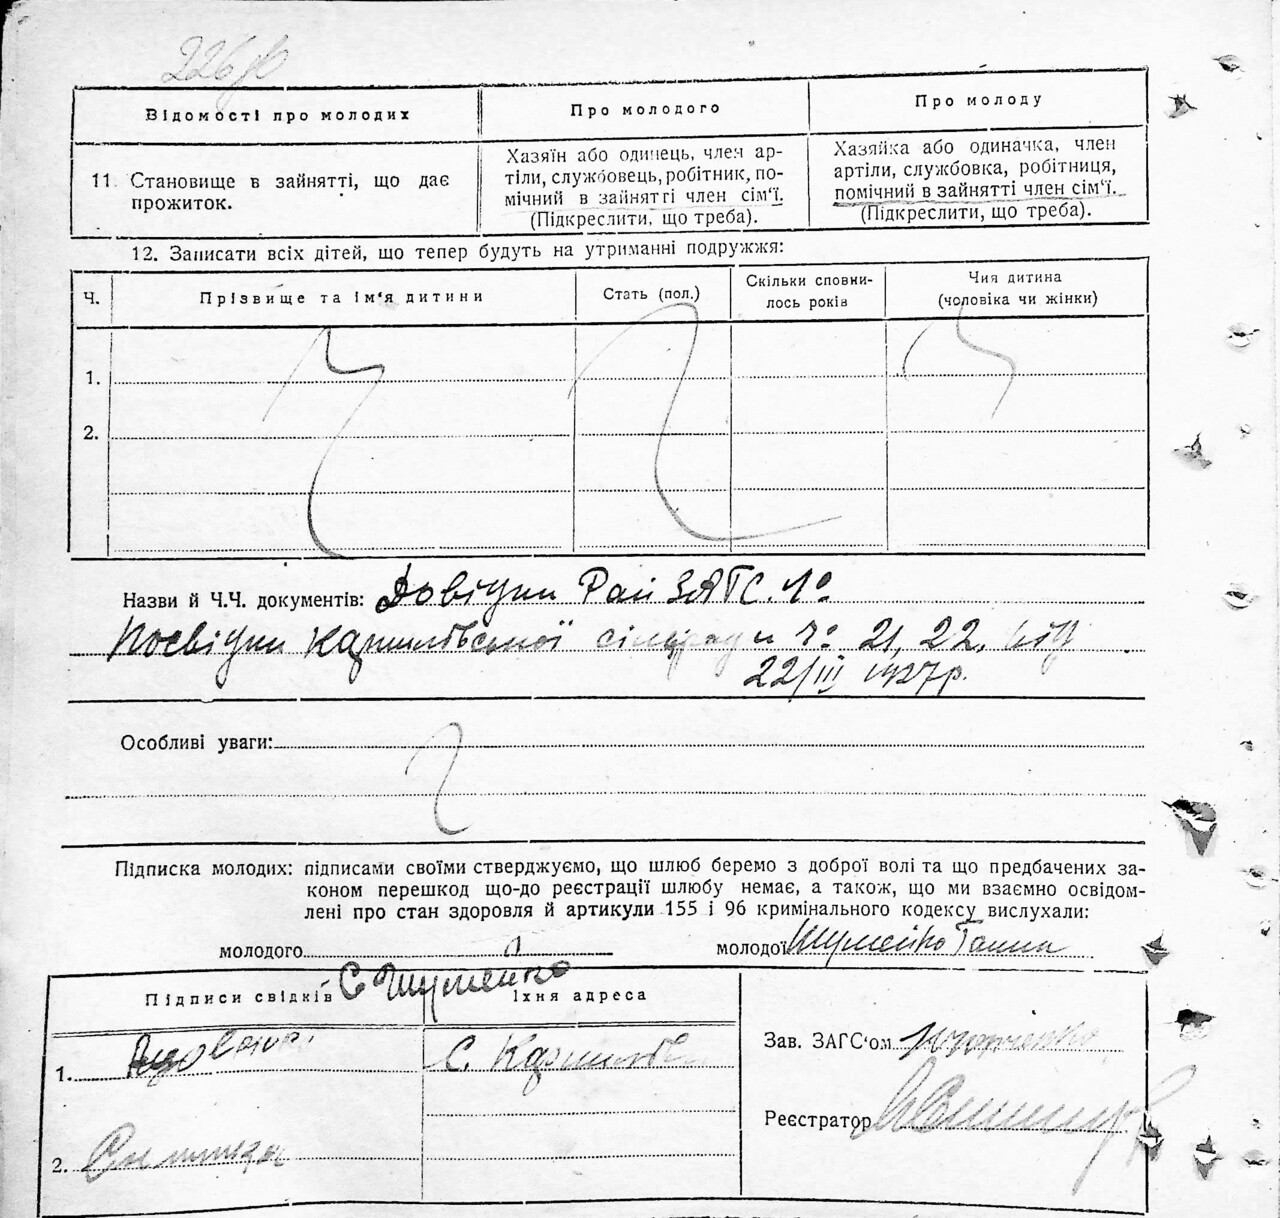 226
Відомості про молодих
Про молодого
Про молоду
11. Становище в зайнятті, що дає
прожиток.
Хазяїн або одинець, член ар-
тіли, службовець, робітник, по-
мічний в зайнятті член сім'ї.
(Підкреслити, що треба).
Хазяйка або одиначка, член
артіли, службовка, робітниця,
помічний в зайнятті член сім'ї.
(Підкреслити, що треба).
12. Записати всіх дітей, що тепер будуть на утриманні подружжя:
Ч.
Прізвище та ім'я дитини
Стать (пол.)
Скільки сповни-
лось років
Чия дитина
(чоловіка чи жінки)
1.
2.
Назви й Ч.Ч. документів: Довідки Рай ЗАГС.
Посвідки сільради 21, 22. від
22/III 1927 р.
Особливі уваги:
Підписка молодих: підписами своїми стверджуємо, що шлюб беремо з доброї волі та що предбачених за-
коном перешкод що-до реєстрації шлюбу немає, а також, що ми взаємно освідом-
лені про стан здоровля й артикули 155 і 96 кримінального кодексу вислухали:
молодого
молодої Шумейко Ганна
С Шумейко
Підписи свідків
Їхня адреса
1.
С.
2.
Зав. ЗАГС'ом
Реєстратор